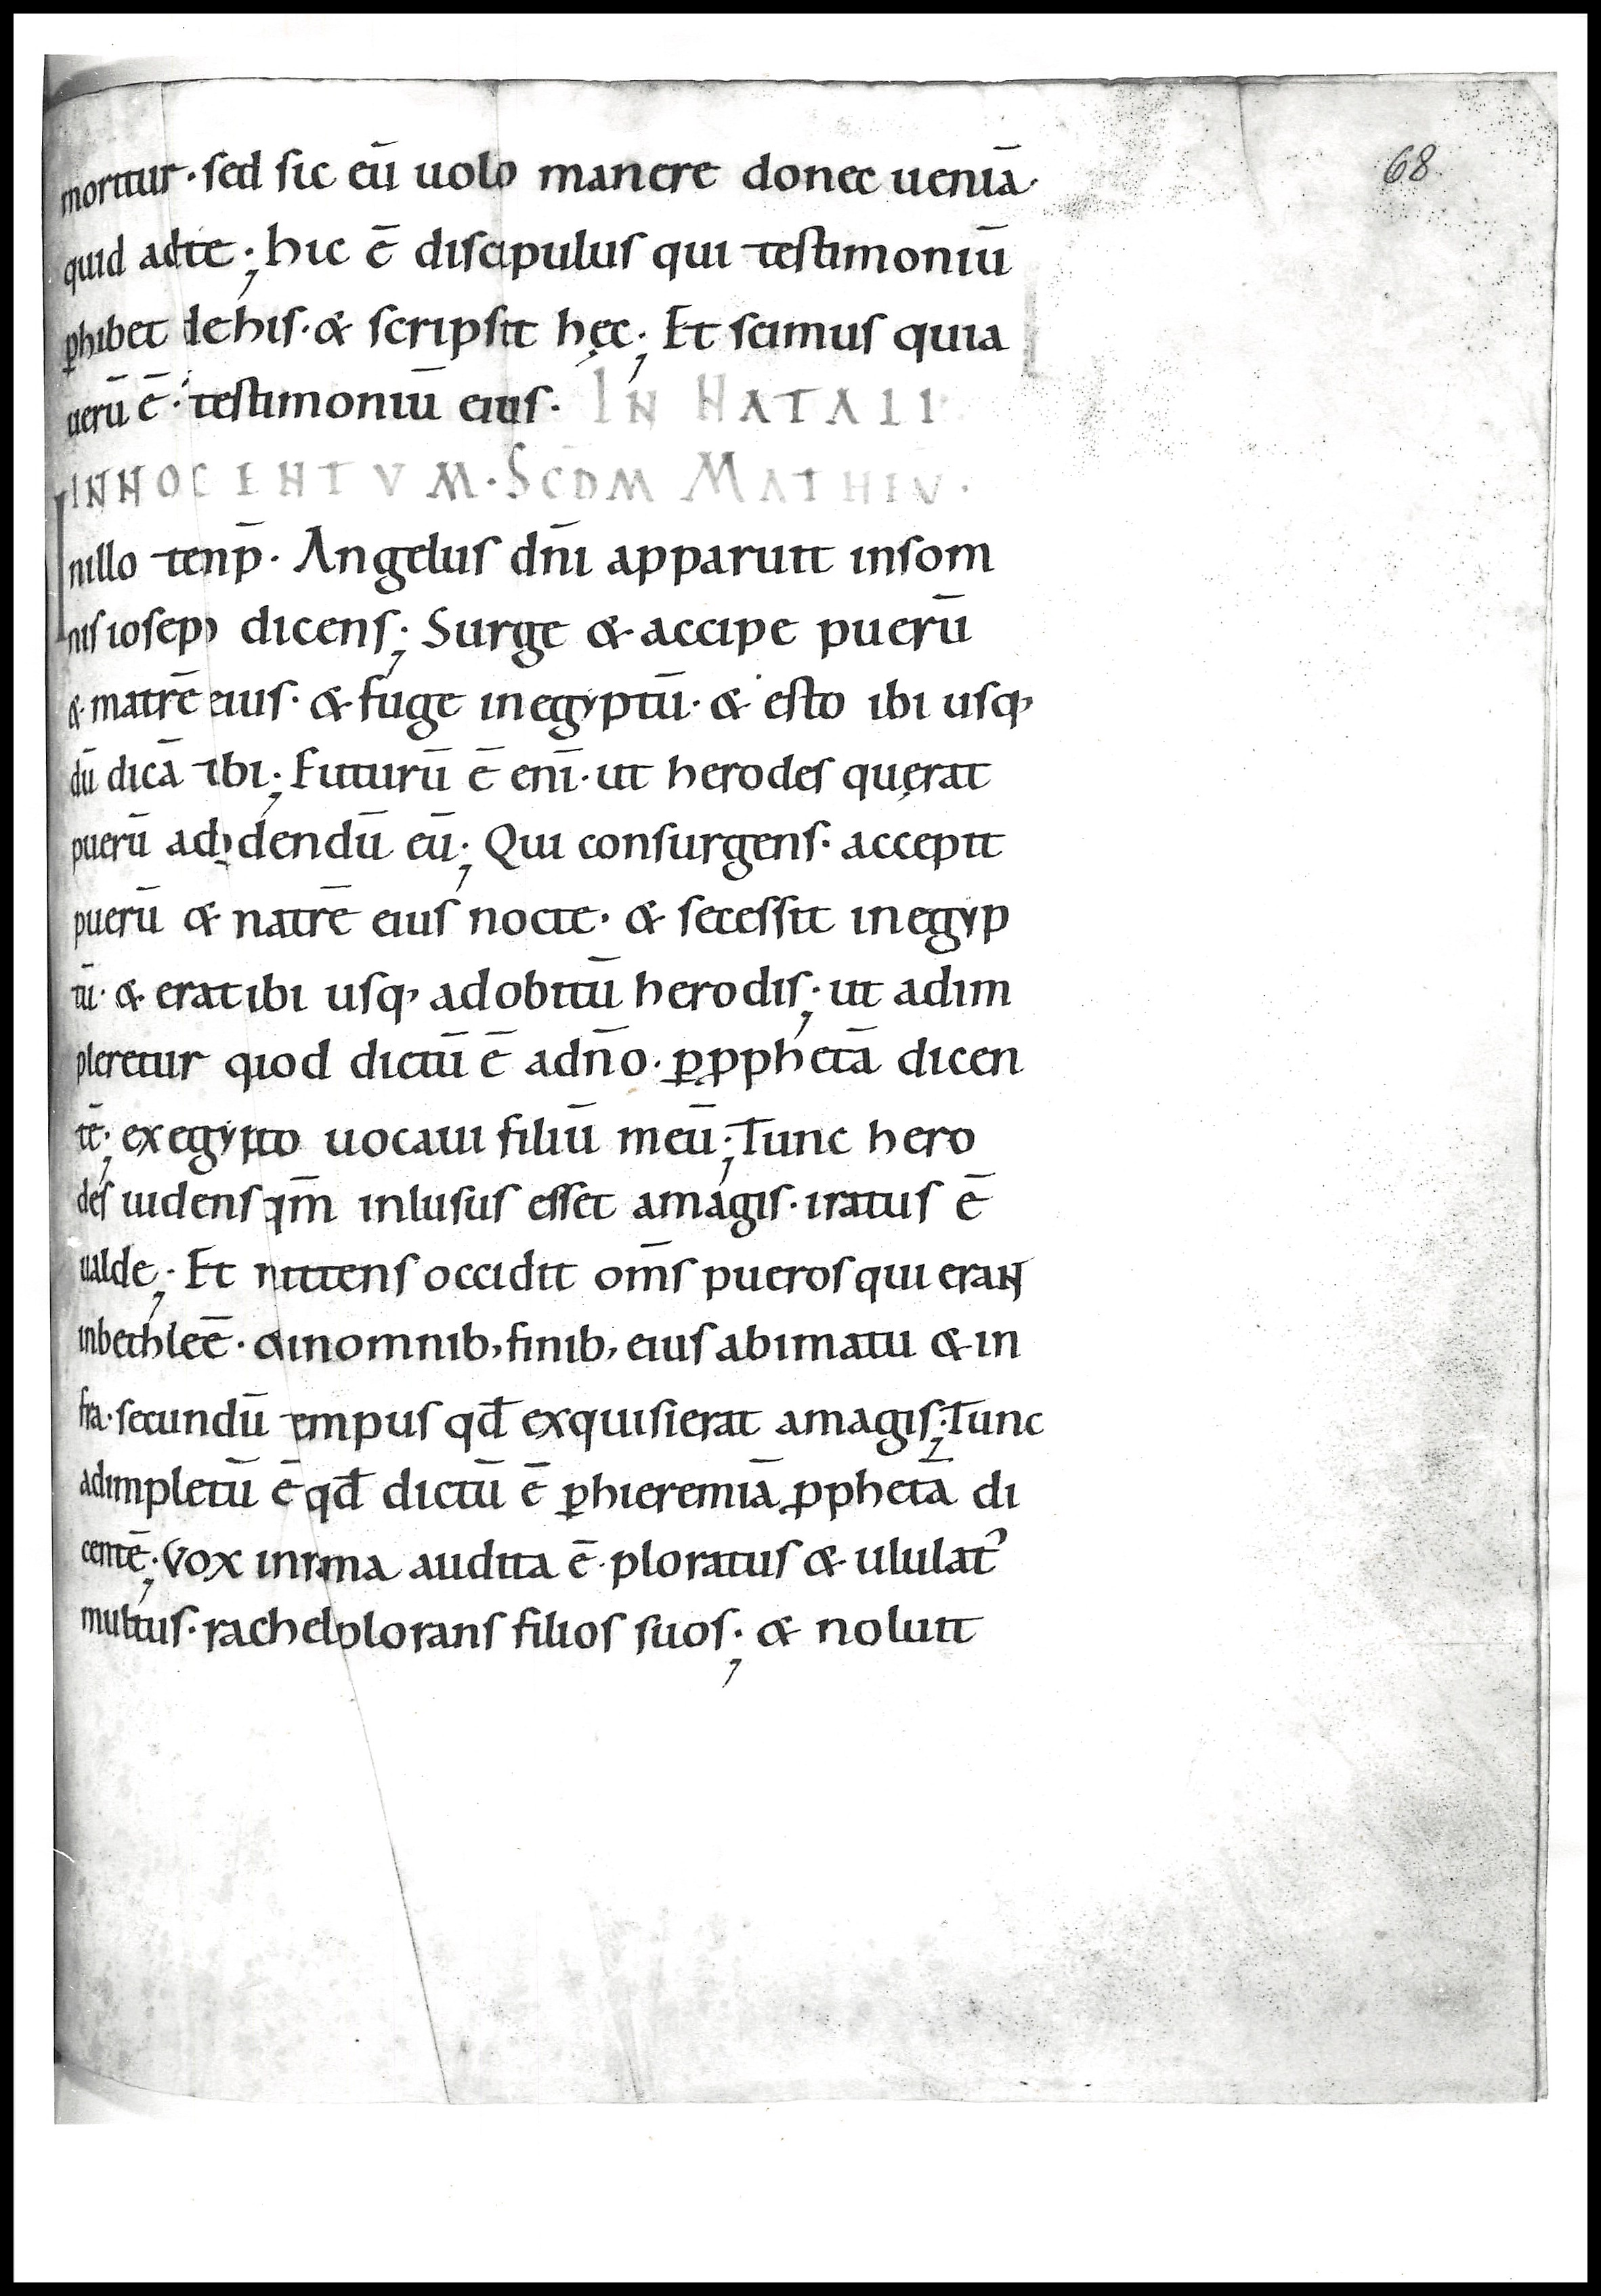 68
moritur · sed sic eū uolo manere donec ueniā ·
quid adte ; hic ē discipulus qui testimoniū
ꝑhibet dehis · & scripsit hęc ; Et scimus quia
uerū ē · testimoniū eius · IN NATALI
INNOCENTVM · SCD̄M MATHEV̄ ·
Inillo temp̄ · Angelus dn̄i apparuit insom
nis ioseph dicens ; Surge & accipe puerū
& matrē eius · & fuge inegyptū · & esto ibi usq,
dū dicā tibi ; Futurū ē enī · ut herodes quęrat
puerū adꝑdendū eū ; Qui consurgens · accepit
puerū & matrē eius nocte · & secessit inegyp
tū · & erat ibi usq, adobitū herodis ; ut adim
pleretur quod dictū ē adn̄o · ꝑ ꝓphetā dicen
tē ; exegypto uocaui filiū meū ; Tunc hero
des uidens qm̄ inlusus esset amagis · iratus ē
ualde ; Et mittens occidit om̄s pueros qui erant
inbethleē · & inomnib, finib, eius abimatu & in
fra · secundū tempus qđ exquisierat amagis ; Tunc
adimpletū ē qđ dictū ē ꝑhieremiā ꝓphetā di
centē ; Vox inrama audita ē · ploratus & ululat᾽
multus · rachel plorans filios suos ; & noluit